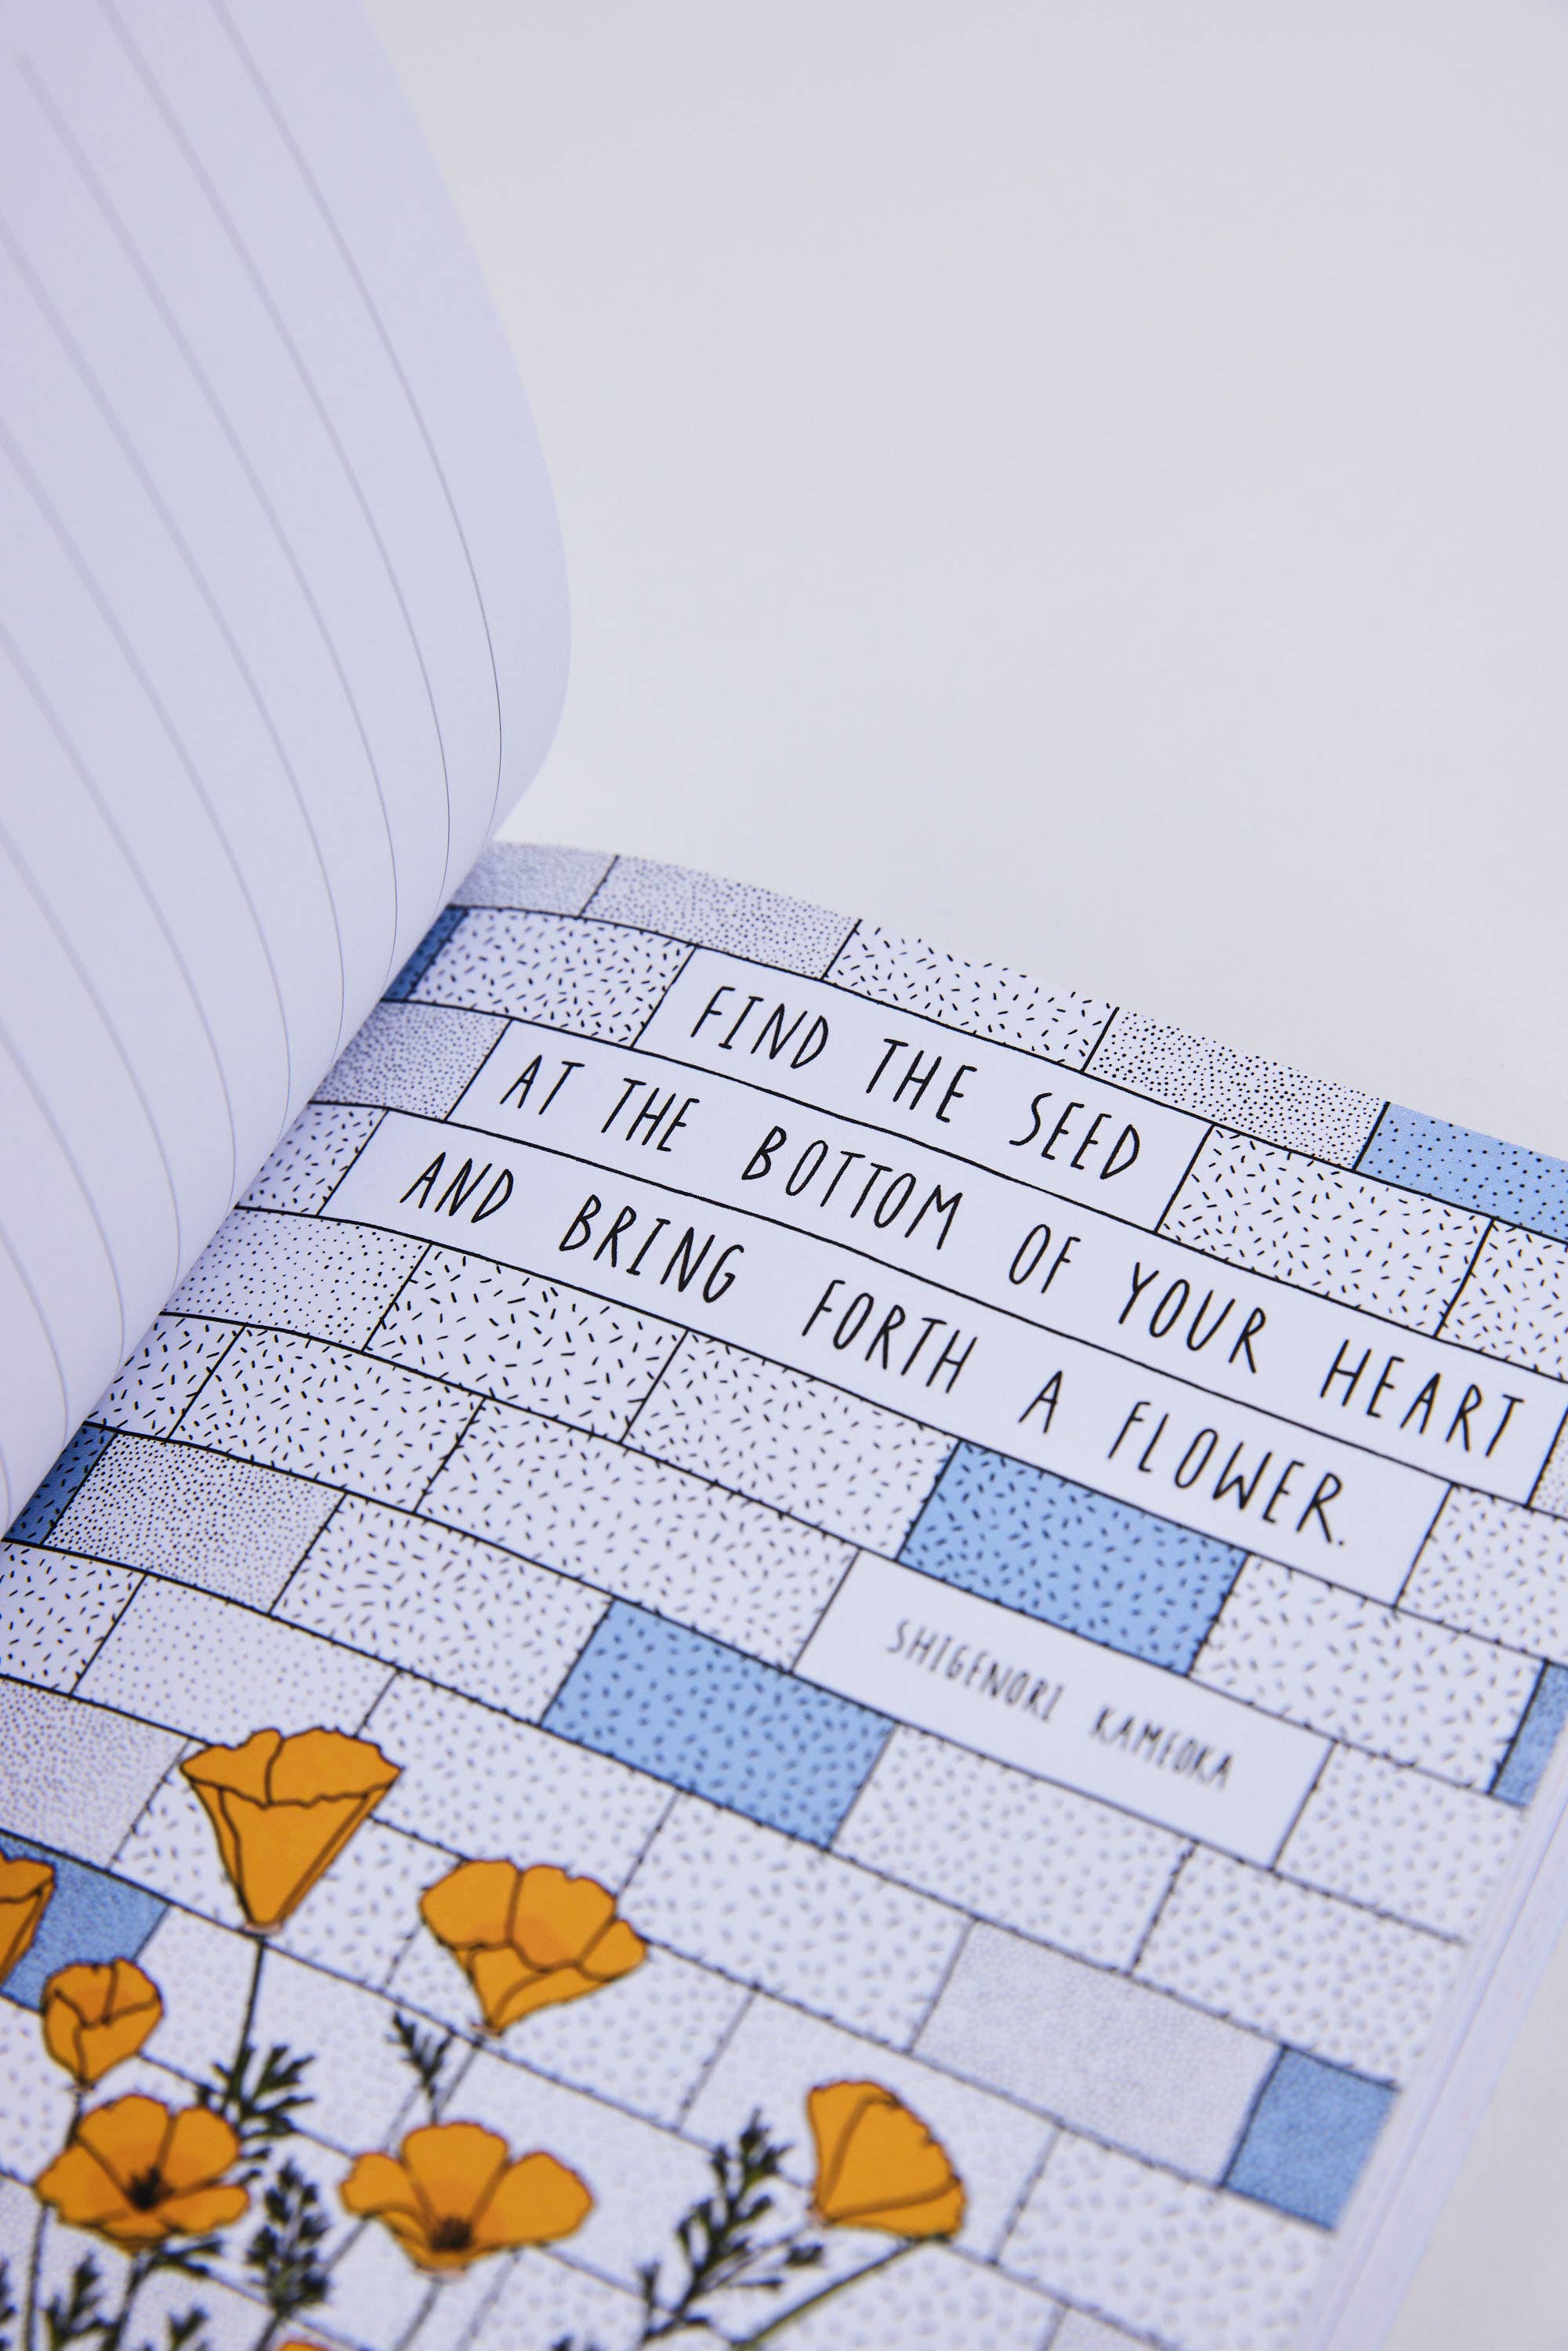 FIND THE SEED
AT THE BOTTOM OF YOUR HEART
AND BRING FORTH A FLOWER.
SHIGENORI KAMEOKA